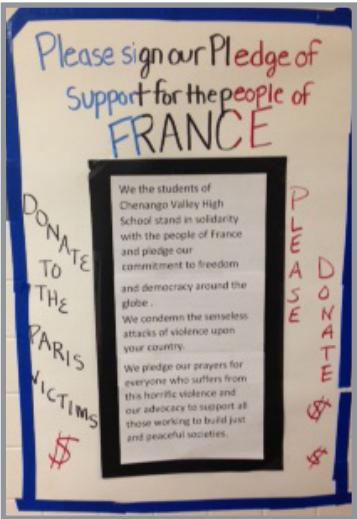 Please sign our Pledge of
Support for the people of
FRANCE
DONATE
TO
THE
PARIS
VICTIMS
$
We the students of
Chenango Valley High
School stand in solidarity
with the people of France
and pledge our
commitment to freedom
and democracy around the
globe .
We condemn the senseless
attacks of violence upon
your country.
We pledge our prayers for
everyone who suffers from
this horrific violence and
our advocacy to support all
those working to build just
and peaceful societies.
PLEASE
DONATE
$
$